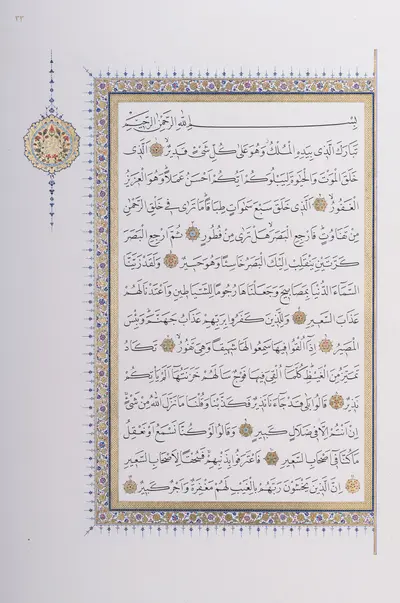 بِسْمِ اللهِ الرَّحْمٰنِ الرَّحِيمِ
تَبَارَكَ الَّذِي بِيَدِهِ الْمُلْكُ وَهُوَ عَلَى كُلِّ شَيْءٍ قَدِيرٌ الَّذِي
خَلَقَ الْمَوْتَ وَالْحَيٰوةَ لِيَبْلُوَكُمْ اَيُّكُمْ اَحْسَنُ عَمَلًا وَهُوَ الْعَزِيزُ
الْغَفُورُ الَّذِي خَلَقَ سَبْعَ سَمٰوَاتٍ طِبَاقًا مَا تَرَى فِي خَلْقِ الرَّحْمٰنِ
مِنْ تَفَاوُتٍ فَارْجِعِ الْبَصَرَ هَلْ تَرَى مِنْ فُطُورٍ ثُمَّ ارْجِعِ الْبَصَرَ
كَرَّتَيْنِ يَنْقَلِبْ اِلَيْكَ الْبَصَرُ خَاسِئًا وَهُوَ حَسِيرٌ وَلَقَدْ زَيَّنَّا
السَّمَاءَ الدُّنْيَا بِمَصَابِيحَ وَجَعَلْنَاهَا رُجُومًا لِلشَّيَاطِينِ وَاَعْتَدْنَا لَهُمْ
عَذَابَ السَّعِيرِ وَلِلَّذِينَ كَفَرُوا بِرَبِّهِمْ عَذَابُ جَهَنَّمَ وَبِئْسَ
الْمَصِيرُ اِذَا اُلْقُوا فِيهَا سَمِعُوا لَهَا شَهِيقًا وَهِيَ تَفُورُ تَكَادُ
تَمَيَّزُ مِنَ الْغَيْظِ كُلَّمَا اُلْقِيَ فِيهَا فَوْجٌ سَاَلَهُمْ خَزَنَتُهَا اَلَمْ يَاْتِكُمْ
نَذِيرٌ قَالُوا بَلَى قَدْ جَاءَنَا نَذِيرٌ فَكَذَّبْنَا وَقُلْنَا مَا نَزَّلَ اللهُ مِنْ شَيْءٍ
اِنْ اَنْتُمْ اِلَّا فِي ضَلَالٍ كَبِيرٍ وَقَالُوا لَوْ كُنَّا نَسْمَعُ اَوْ نَعْقِلُ
مَا كُنَّا فِي اَصْحَابِ السَّعِيرِ فَاعْتَرَفُوا بِذَنْبِهِمْ فَسُحْقًا لِاَصْحَابِ السَّعِيرِ
اِنَّ الَّذِينَ يَخْشَوْنَ رَبَّهُمْ بِالْغَيْبِ لَهُمْ مَغْفِرَةٌ وَاَجْرٌ كَبِيرٌ